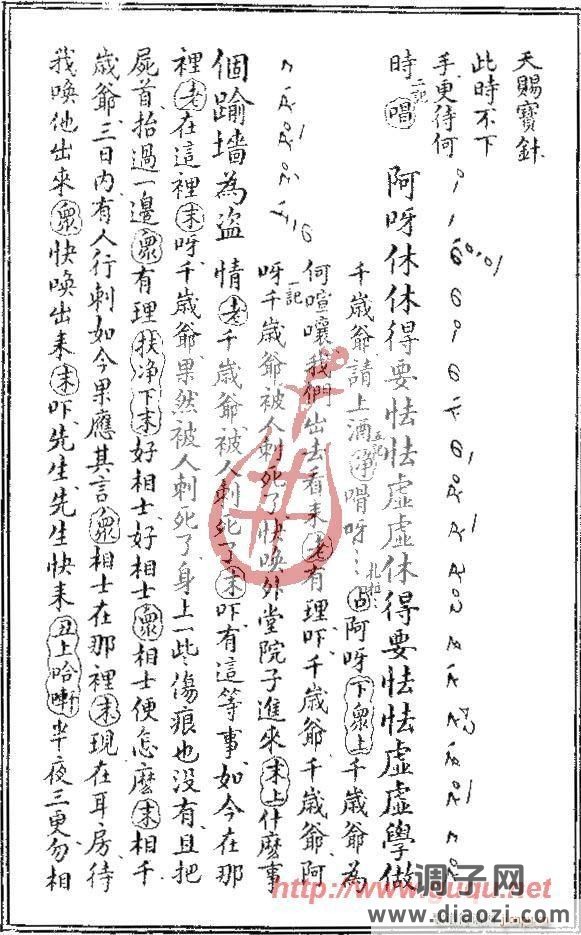 天賜寶針
此時不下
手更待何
時 二記 唱 阿呀休休得要怯怯虛虛休得要怯怯虛虛學做
千歲爺請上酒 五記 淨 唶呀 扎拉 占 阿呀 下眾上 千歲爺為
何喧嚷我們出去看來 老 有理吓千歲爺千歲爺阿
呀 一記 千歲爺被人刺死了快喚外堂院子進來 末上 什麽事
個踰墻為盜情 老 千歲爺被人刺死了 末 吓有這等事如今在那
裡 老 在這裡 末 呀千歲爺果然被人刺死了身上一些傷痕也沒有且把
屍首抬過一邊 眾 有理 扶淨下末 好相士好相士 眾 相士便怎麽 末 相千
歲爺三日內有人行刺如今果應其言 眾 相士在那裡 末 現在耳房待
我喚他出來 眾 快喚出來 末 吓先生先生快來 丑上 哈 半夜三更勿相
http://www.guqu.net
调子网
www.diaozi.com